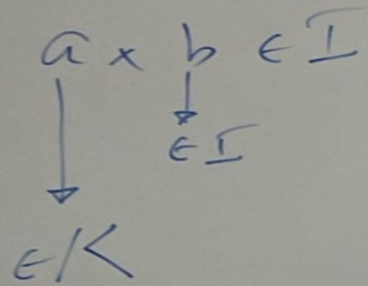 a × b ∈ I
∈ I
∈ K